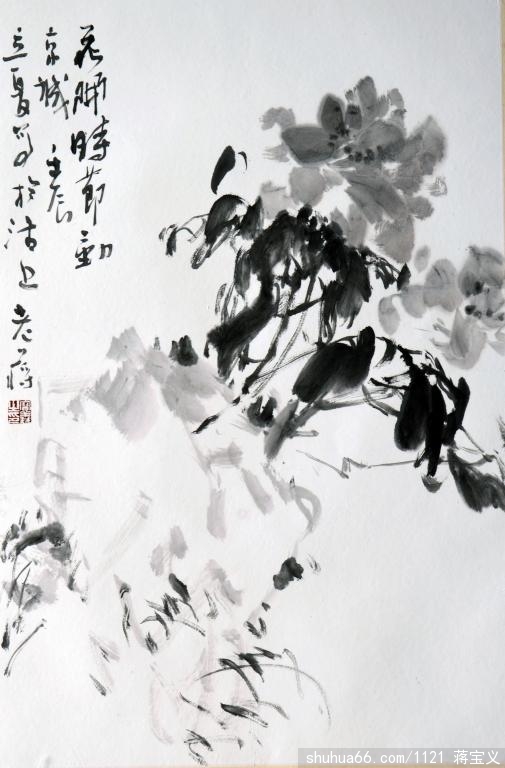 花開時節動
京城 壬辰
立夏写於沽上 老蒋
shuhua66.com/1121 蒋宝义